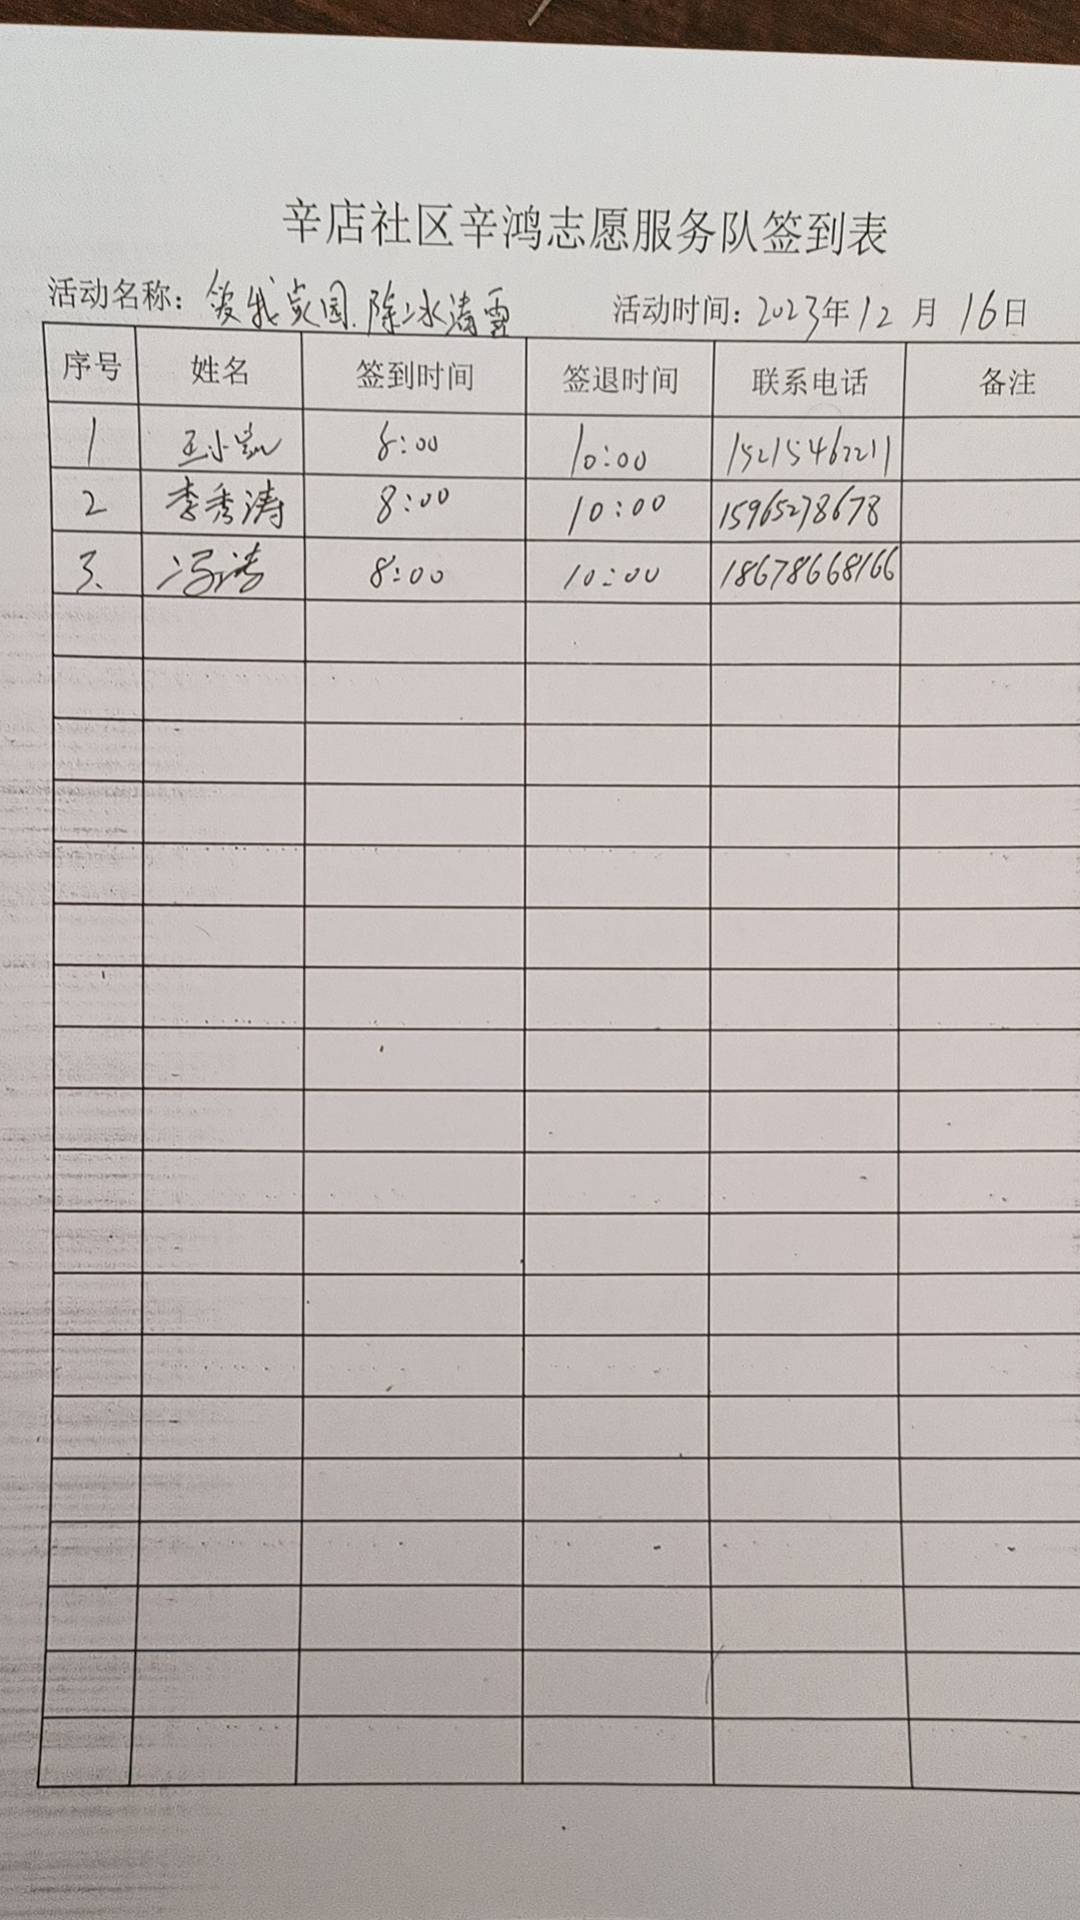 辛店社区辛鸿志愿服务队签到表
活动名称：爱我家园.除冰清雪 活动时间：2023年12月16日
序号 姓名 签到时间 签退时间 联系电话 备注
1 王小凯 8:00 10:00 15215462211
2 李秀涛 8:00 10:00 15965278678
3、 冯涛 8:00 10:00 18678668166